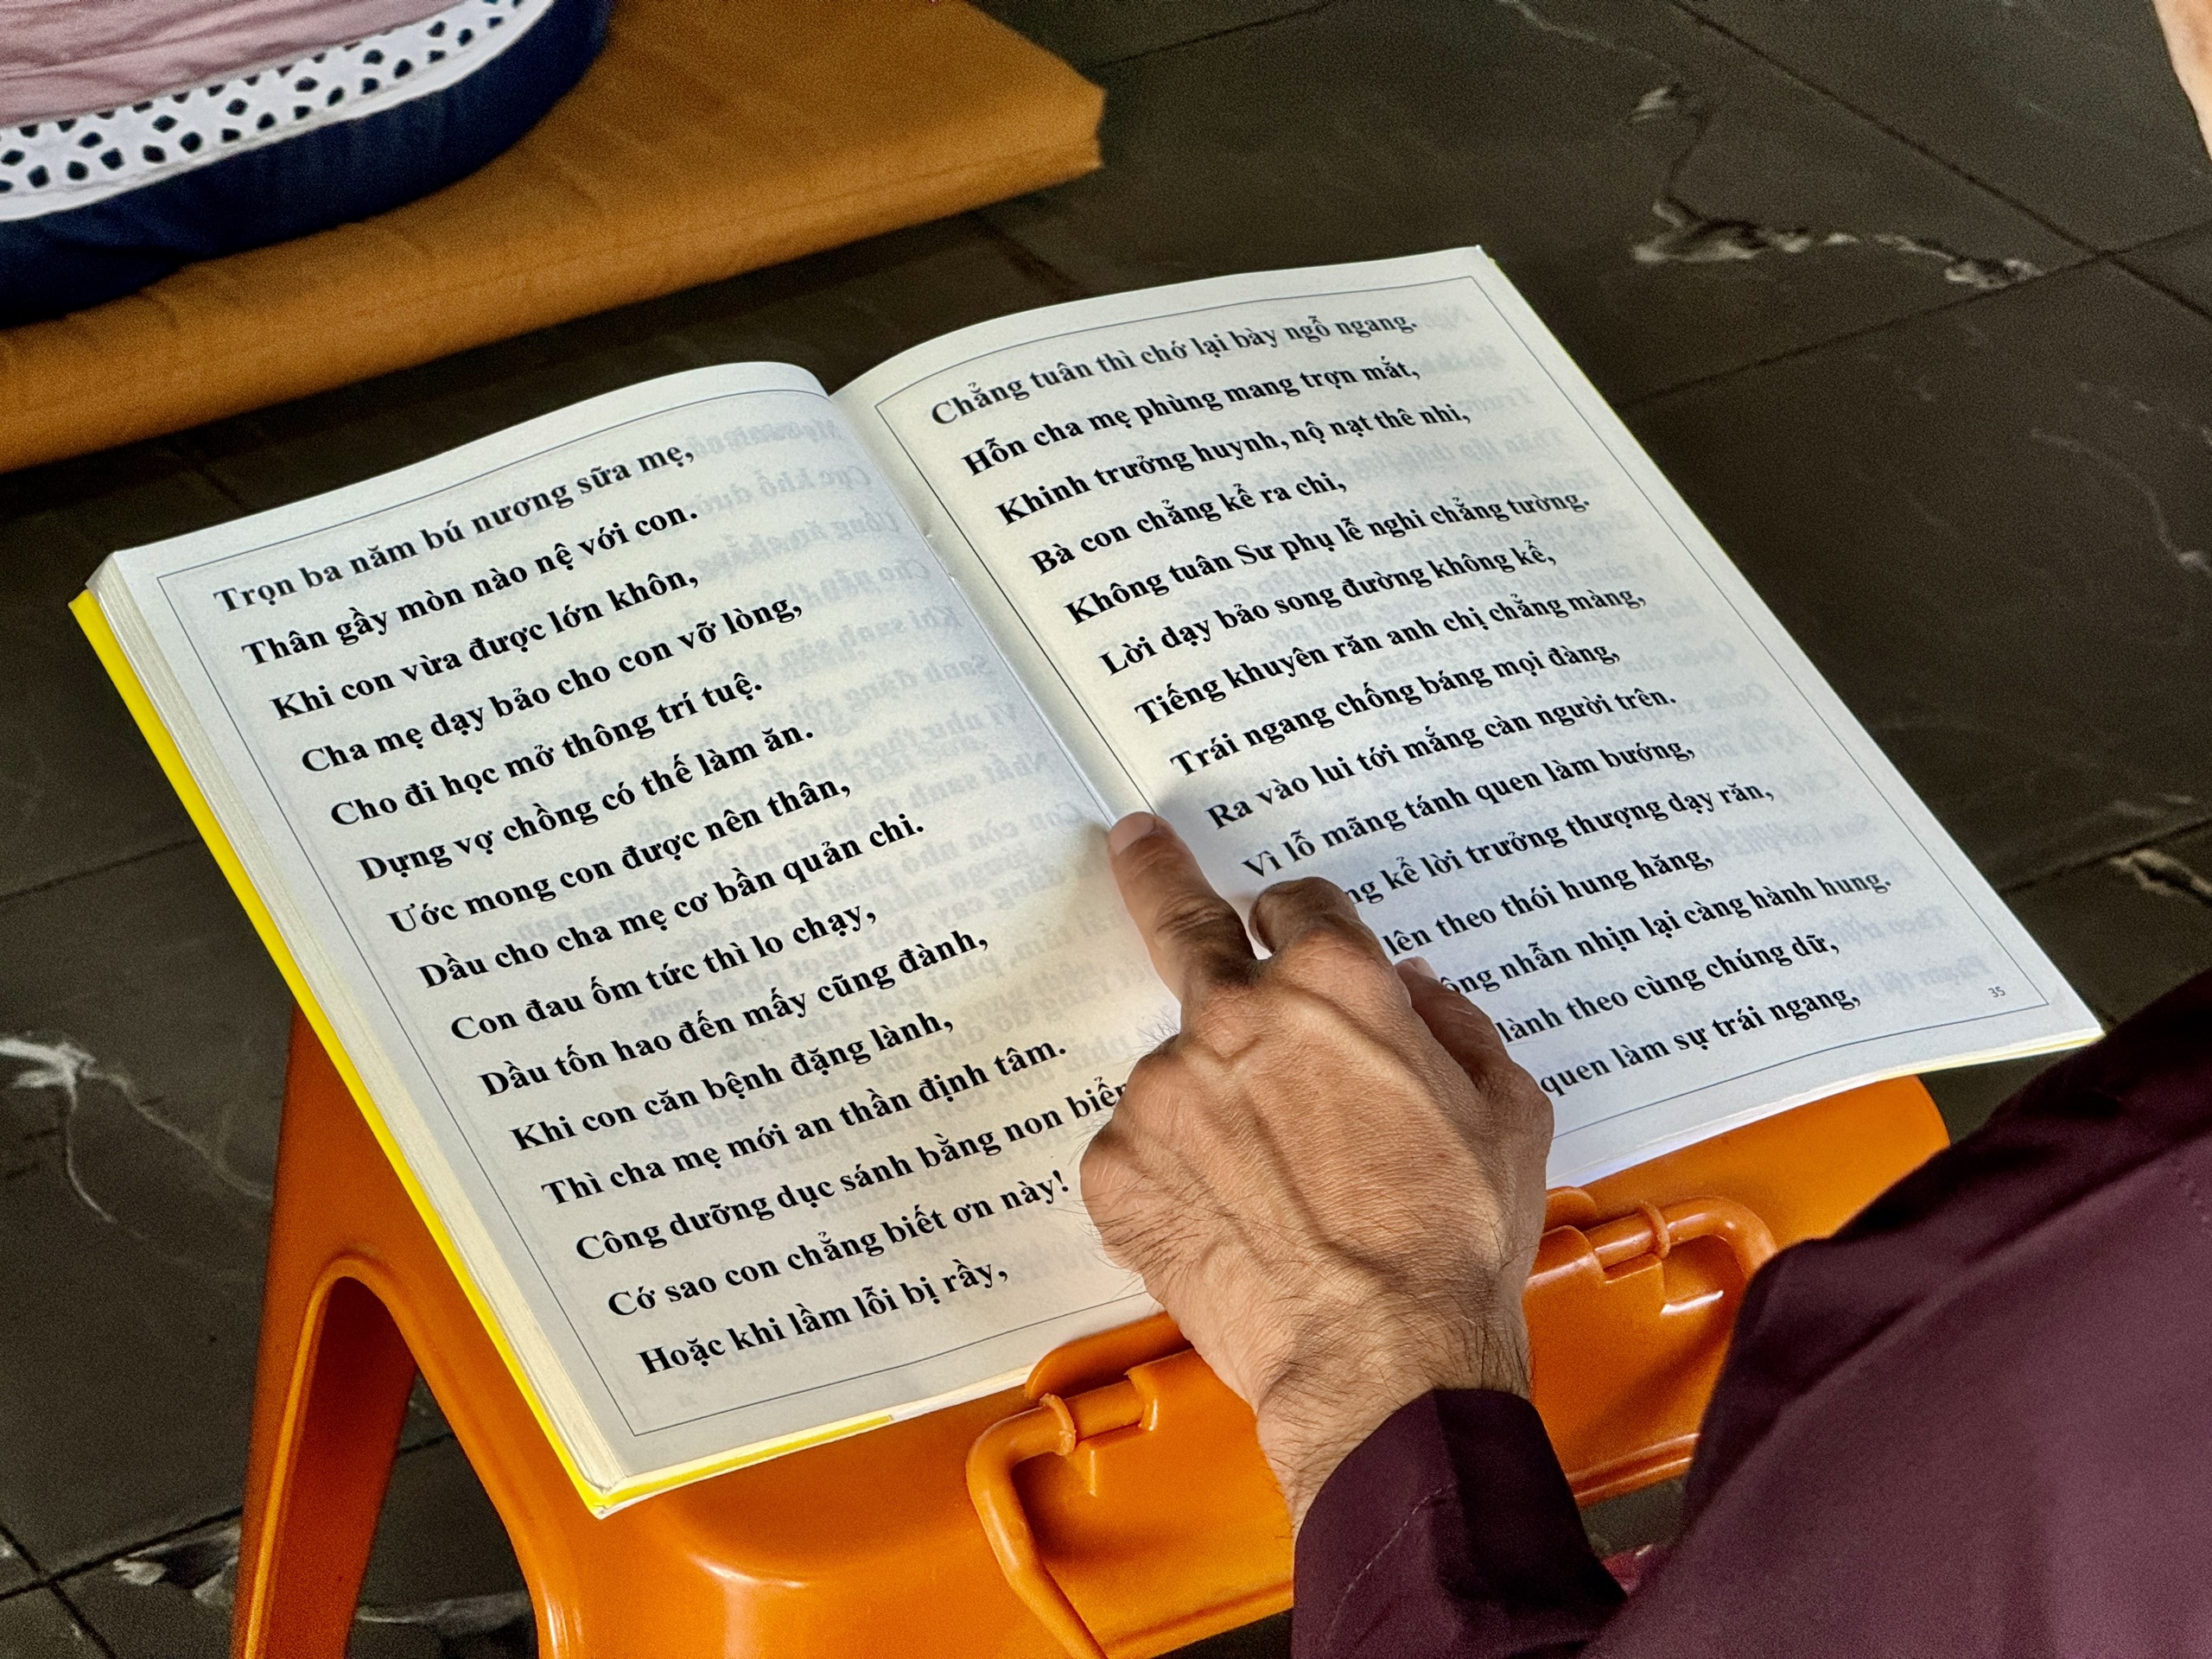 Trọn ba năm bú nương sữa mẹ,
Thân gầy mòn nào nệ với con.
Khi con vừa được lớn khôn,
Cha mẹ dạy bảo cho con vỡ lòng,
Cho đi học mở thông trí tuệ.
Dựng vợ chồng có thế làm ăn.
Ước mong con được nên thân,
Dầu cho cha mẹ cơ bần quản chi.
Con đau ốm tức thì lo chạy,
Dầu tốn hao đến mấy cũng đành,
Khi con căn bệnh đặng lành,
Thì cha mẹ mới an thần định tâm.
Công dưỡng dục sánh bằng non biển
Cớ sao con chẳng biết ơn này!
Hoặc khi lầm lỗi bị rầy,
Chẳng tuân thì chớ lại bày ngỗ ngang.
Hỗn cha mẹ phùng mang trợn mắt,
Khinh trưởng huynh, nộ nạt thê nhi,
Bà con chẳng kể ra chi,
Không tuân Sư phụ lễ nghi chẳng tường.
Lời dạy bảo song đường không kể,
Tiếng khuyên răn anh chị chẳng màng,
Trái ngang chống báng mọi đàng,
Ra vào lui tới mắng càn người trên.
Vì lỗ mãng tánh quen làm bướng,
kể lời trưởng thượng dạy răn,
lên theo thói hung hăng,
nhẫn nhịn lại càng hành hung.
lành theo cùng chúng dữ,
quen làm sự trái ngang,
35